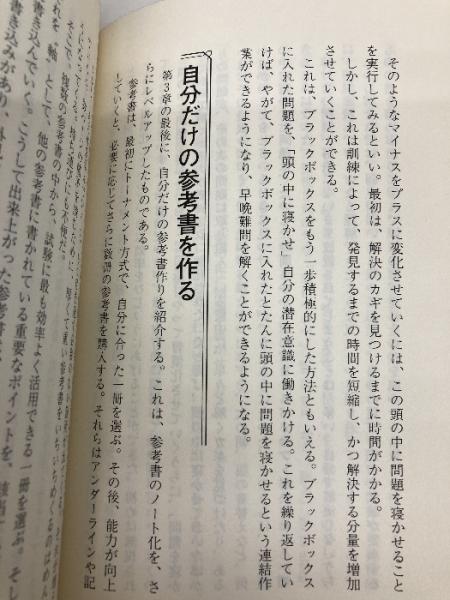 そのようなマイナスをプラスに変化させていくには、この頭の中に問題を寝かせること
を実行してみるといい。最初は、解決のカギを見つけるまでに時間がかかる。
しかし、これは訓練によって、発見するまでの時間を短縮し、かつ解決する分量を増加
させていくことができる。
これは、ブラックボックスをもう一歩積極的にした方法ともいえる。ブラックボックス
に入れた問題を、「頭の中に寝かせ」自分の潜在意識に働きかける。これを繰り返してい
けば、やがて、ブラックボックスに入れたとたんに頭の中に問題を寝かせるという連結作
業ができるようになり、早晩難問を解くことができるようになる。
自分だけの参考書を作る
第3章の最後に、自分だけの参考書作りを紹介する。これは、参考書のノート化を、さ
らにレベルアップしたものである。
参考書は、最初にトーナメント方式で、自分に合った一冊を選ぶ。その後、能力が向上
していくと、必要に応じてさらに数冊の参考書を購入する。それらはアンダーラインや記
そこで、複数の参考書の中から、試験に最も効率よく活用できる一冊を選ぶ。そし
れを「軸」として、他の参考書に書かれている重要なポイントを、該当
書き込んでいく。こうして出来上がった参考書